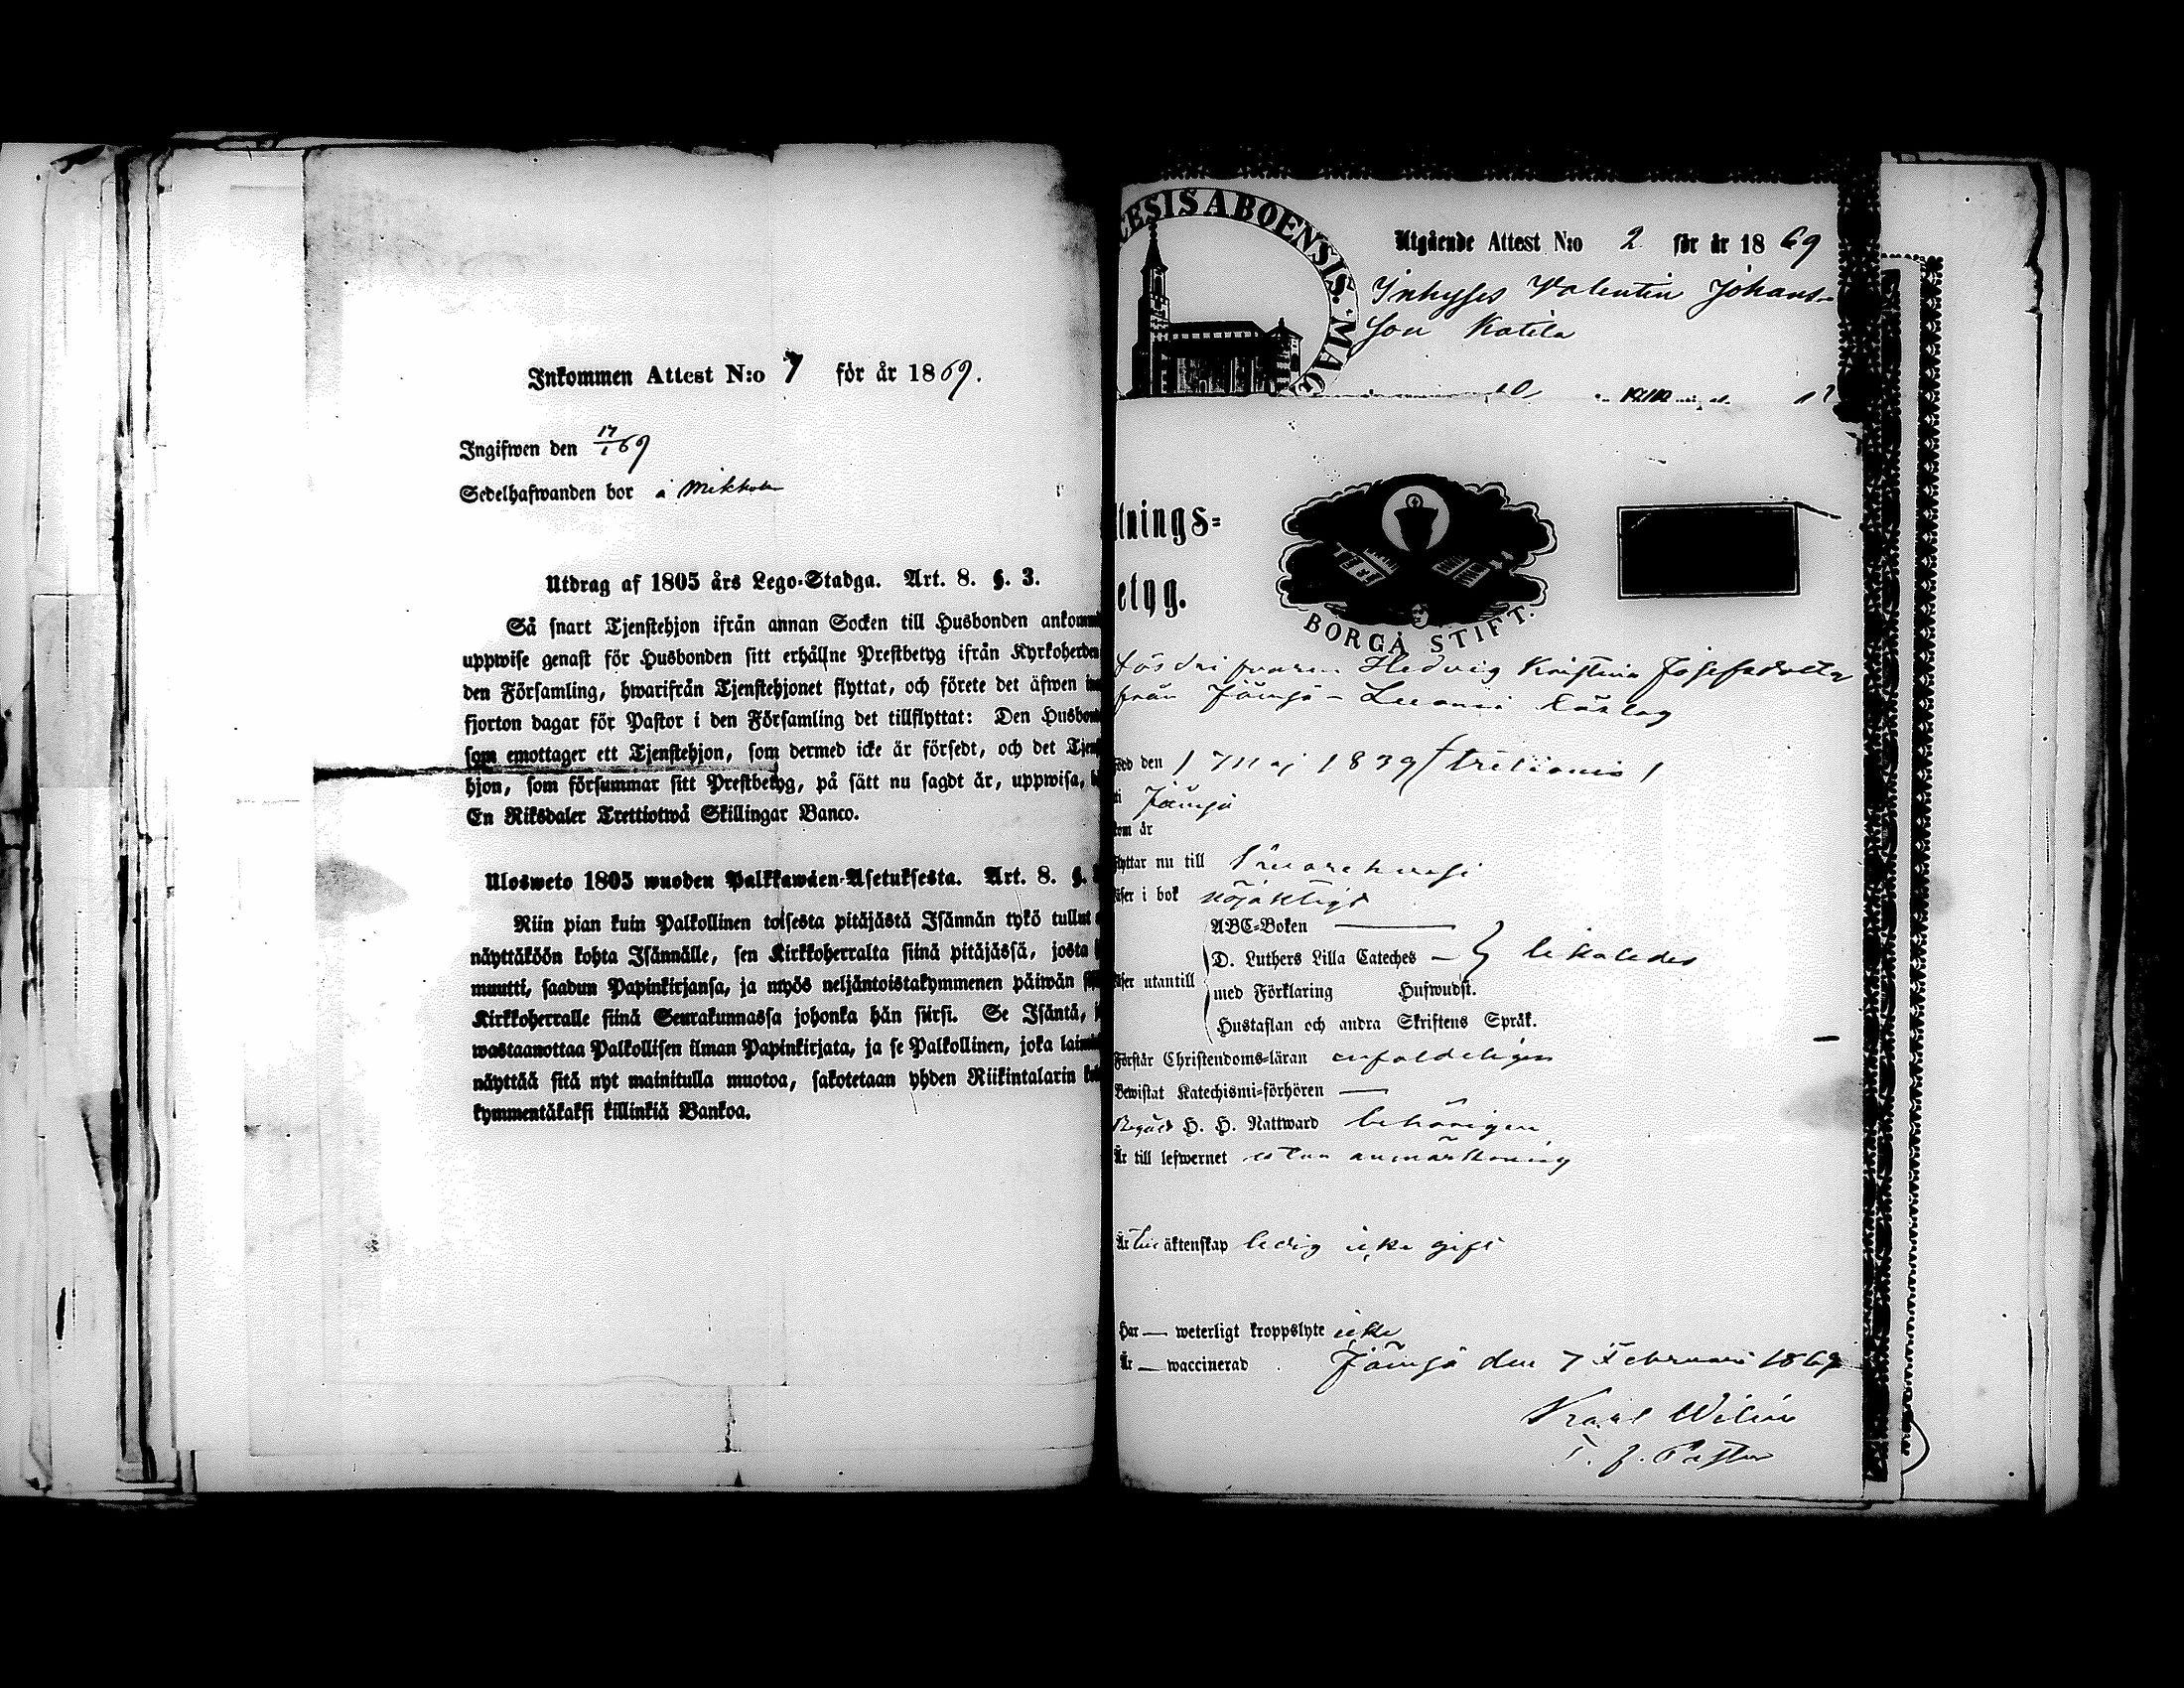 Inkommen Attest N:o 7 för år 1869.
Ingifwen den 17/1 69
Sedelhafwanden bor å
Utdrag af 1805 års Lego-Stadga. Art. 8. §. 3.
Så snart Tjenstehjon ifrån annan Socken till Husbonden ankomm
uppwise genast för Husbonden sitt erhållne Prestbetyg ifrån Kyrkoherden
den Församling, hwarifrån Tjenstehjonet flyttat, och förete det äfwen in
fjorton dagar för Pastor i den Församling det tillflyttat: Den Husbon
som emottager ett Tjenstehjon, som dermed icke är försedt, och det Tjen
hjon, som försummar sitt Prestbetyg, på sätt nu sagdt är, uppwisa, b
En Riksdaler Trettiotwå Skillingar Banco.
Ulosweto 1805 wuoden Palkkawäen-Asetuksesta. Art. 8. §.
Niin pian kuin Palkollinen toisesta pitäjästä Isännän tykö tullut
näyttäköön kohta Isännälle, sen Kirkkoherralta siinä pitäjässä, josta
muutti, saadun Papinkirjansa, ja myös neljäntoistakymmenen päiwän
Kirkkoherralle siinä Seurakunnassa johonka hän siirsi. Se Isäntä,
wastaanottaa Palkollisen ilman Papinkirjata, ja se Palkollinen, joka laim
näyttää sitä nyt mainitulla muotoa, sakotetaan yhden Riikintalarin
kymmentäkaksi killinkiä Bankoa.
CESIS ABOENSIS. MAG
Utgående Attest N:o 2 för år 1869
Inhyses Valentin Johans-
son Katila
tnings-
etyg.
BORGÅ STIFT.
Hedvig Kristina Josefsdotter
från Jämsä
ödd den 1 Maj 1839
i Jämsä
som är
flyttar nu till
läser i bok nöjaktigt
ABC-Boken
D. Luthers Lilla Cateches } likaledes
läser utantill med Förklaring Hufwudst.
Hustaflan och andra Skriftens Språk.
Förstår Christendoms-läran enfaldeligen
Bewistat Katechismi-förhören —
Begått H. H. Nattward behörigen
Är till lefwernet utan anmärkning
Är till äktenskap ledig icke gift
Har — weterligt kroppslyte icke
Är — waccinerad
Jämsä den 7 Februari 1869
Karl
T. f. Pastor